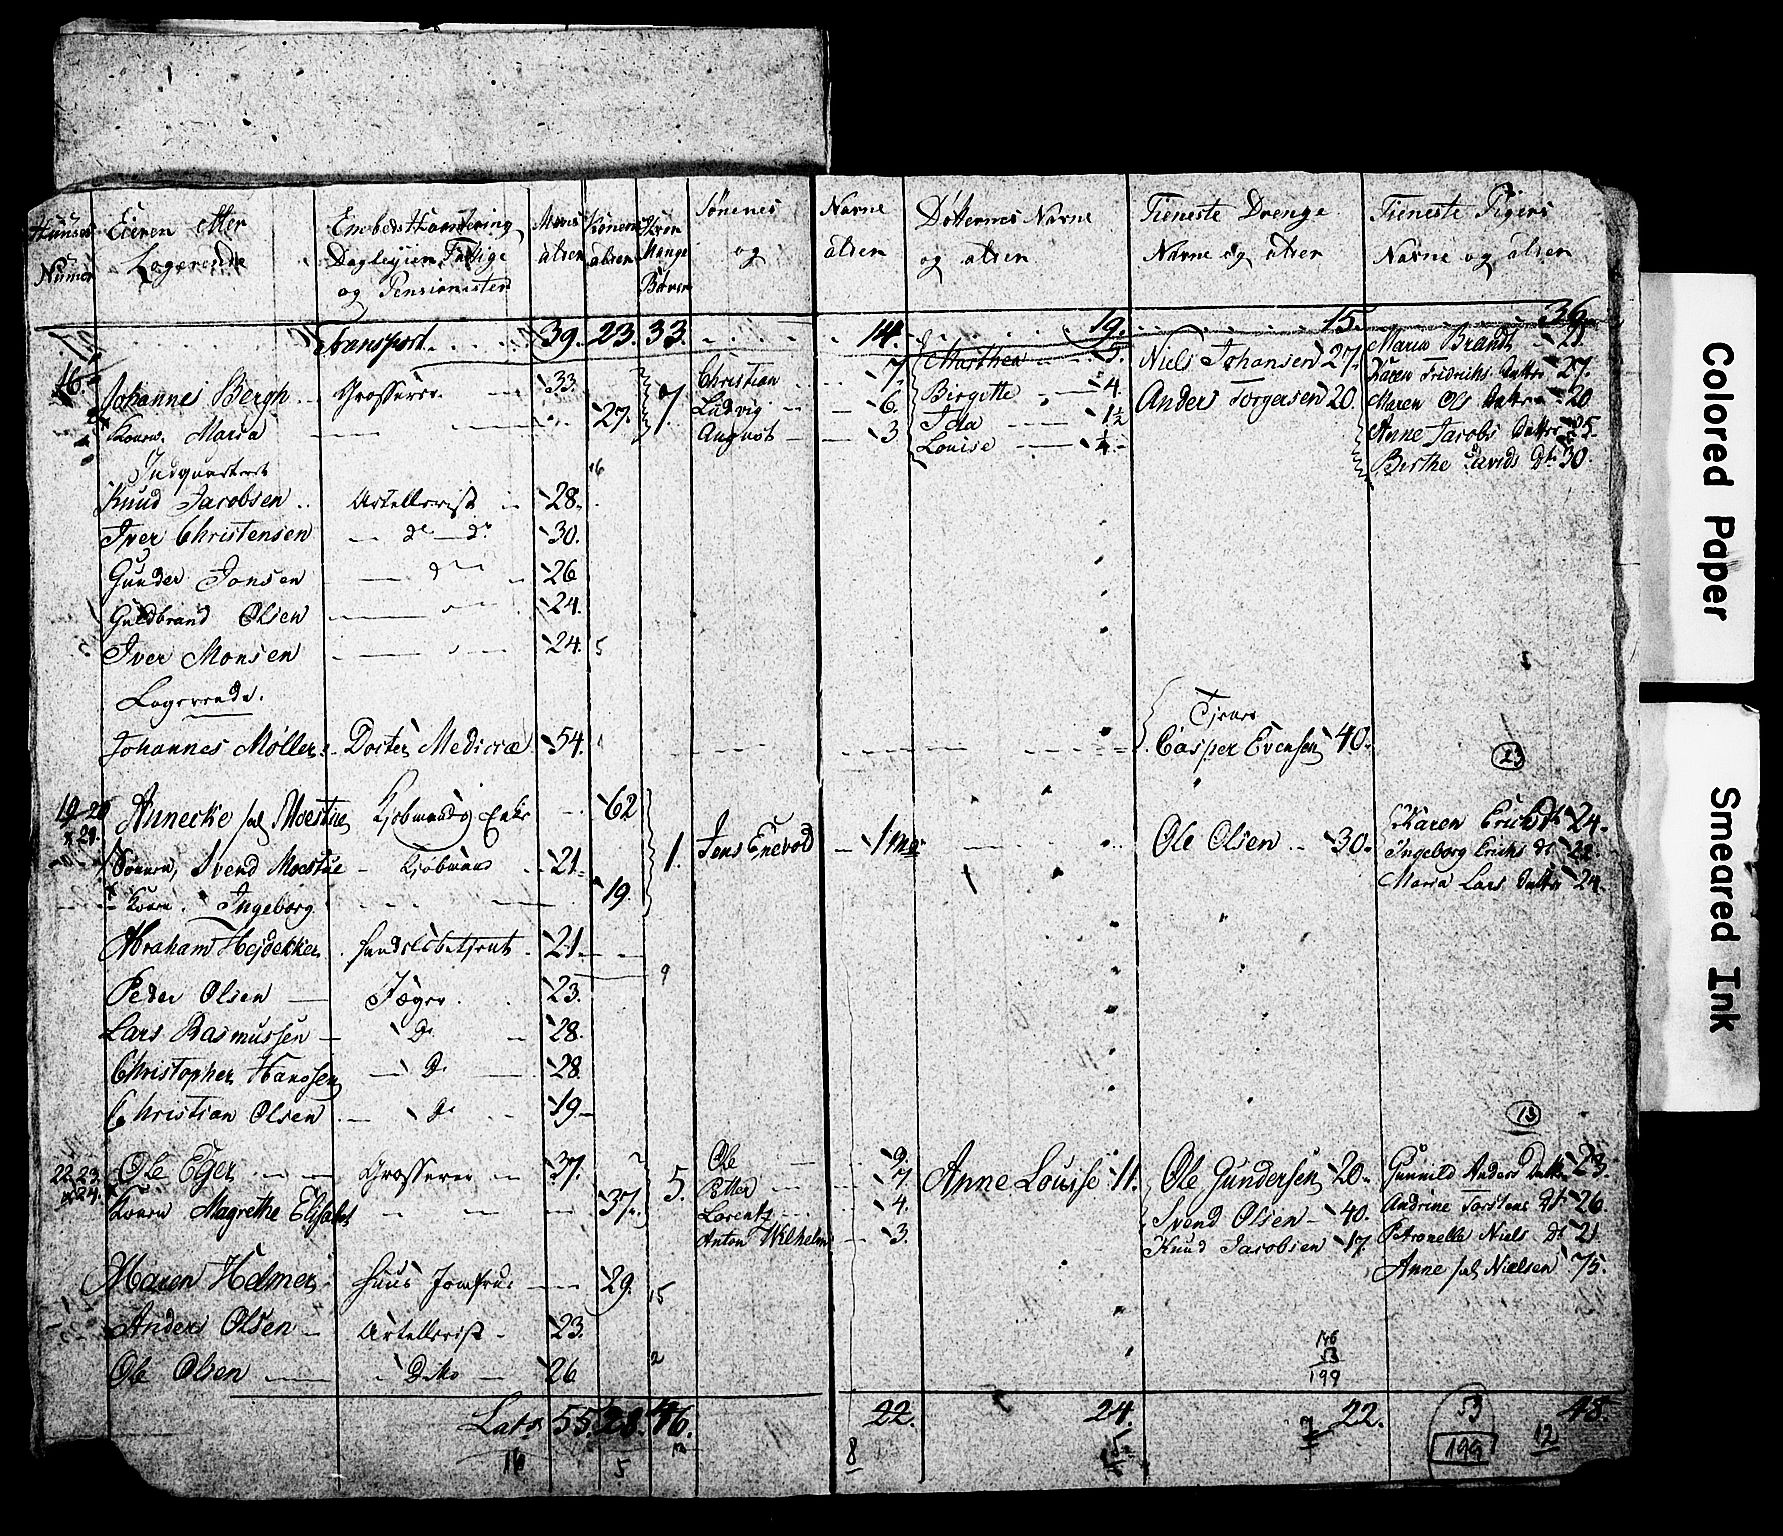 Huuses Eieren eller Embeds Handtering Mans Konens Hvor Sønenes Navne Døtternes Navne Tieneste Drenge Tieneste Pigers
Numer Logerende Dagleyien Fattige alder alder Mange og alder og alder Navne og alder Navne og alder
og Pensionister Børen
Transport 39. 23. 33. 14. 19. 15. 36.
16. Johannes Bergh Grosserer 33. 7. Christian 7. Marthea 5. Niels Johansen 27. Maren Brandt 21.
Konen Maria 27. Ludvig 6. Birgitte 4. Anders Torgersen 20. Karen Fridrichs Datter 27.
August 3. Ida 1½ Maren Ols Datter 20.
Louise ¼. Anne Jacobs Datter 25.
Birthe Davids Dt. 30.
Indquarteret 6
Knud Jacobsen Artellerist 28.
Iver Christensen do do 30.
Gunder Jonsen d 26
Guldbrand Olsen 24.
Iver Monsen 24. 5
Logerende.
Johannes Møller Docter Medicinæ 54. Tjener
Casper Evensen 40.
23
19-20 Annecke sal Moestue Kjøbmands Enke 62 1. Jens Enevold 1 Ole Olsen 30. Karen Erichs Dt 24.
21. Sønnen, Svend Moestue Kjøbmand 21. Ingeborg Erichs Dt 22.
Konen Ingeborg 19. Maria Lars Datter 24.
Abraham Hejdekker Handelsbetjent 21.
9
Peder Olsen Jæger 23.
Lars Rasmussen Do 28.
Christopher Hansen Do 28.
Christian Olsen Do 19.
13
22.23. Ole Eger Grosserer 37. 5. Ole 9. Anne Louise 11. Ole Gundersen 20. Gunnild Anders Datter 23.
24. Konen Magrethe Elisabet 37. Petter 7. Svend Olsen 40. Andrine Torstens Dt 26
Larentz 4. Knud Jacobsen 17. Petronelle Niels Dt 21
Anton Wilhelm 3. Anne sal Nielsen 75.
Maren Helmer Huus Jomfrue 29. 15
Anders Olsen Artellerist 23.
Ole Olsen Dito 26 2
146
53
199
Lats 55. 28. 46. 22. 24. 22. 48.
16 5 12 8 5 7 53 12
199
Colored Paper
Smeared Ink